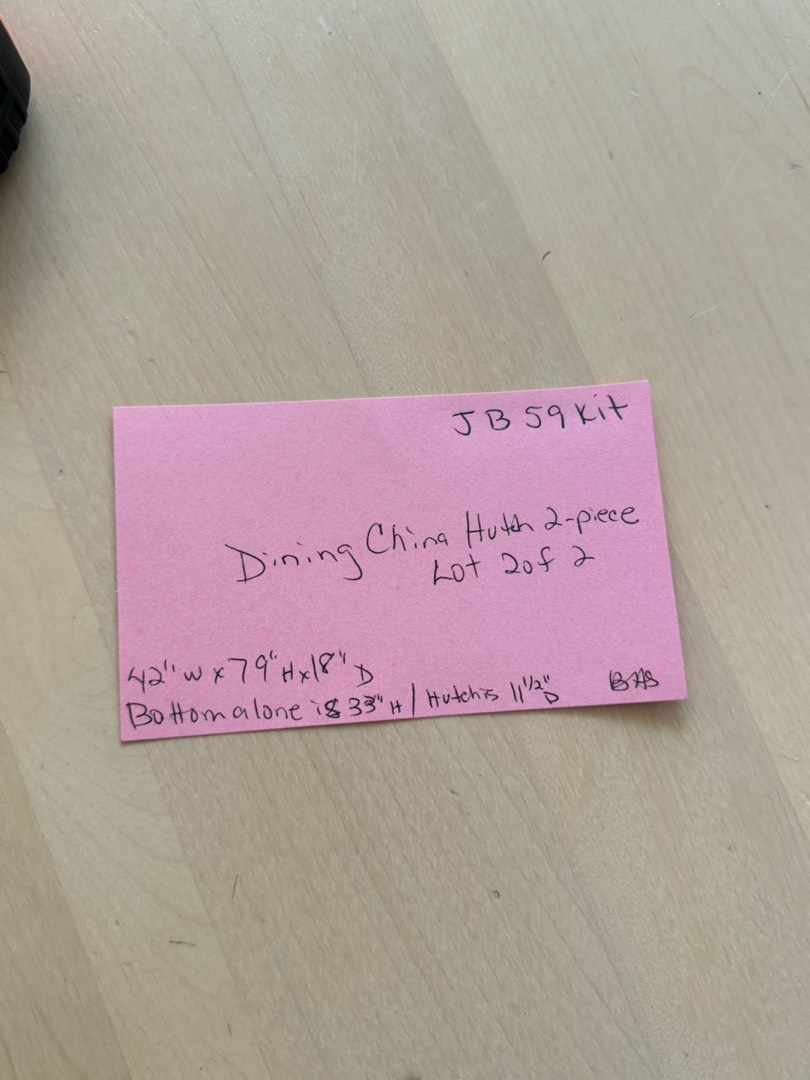 JB 59 Kit
Dining China Hutch 2-piece
Lot 2 of 2
42" W x 79" H x 18" D
Bottom alone is 33" H / Hutch is 11 1/2" D